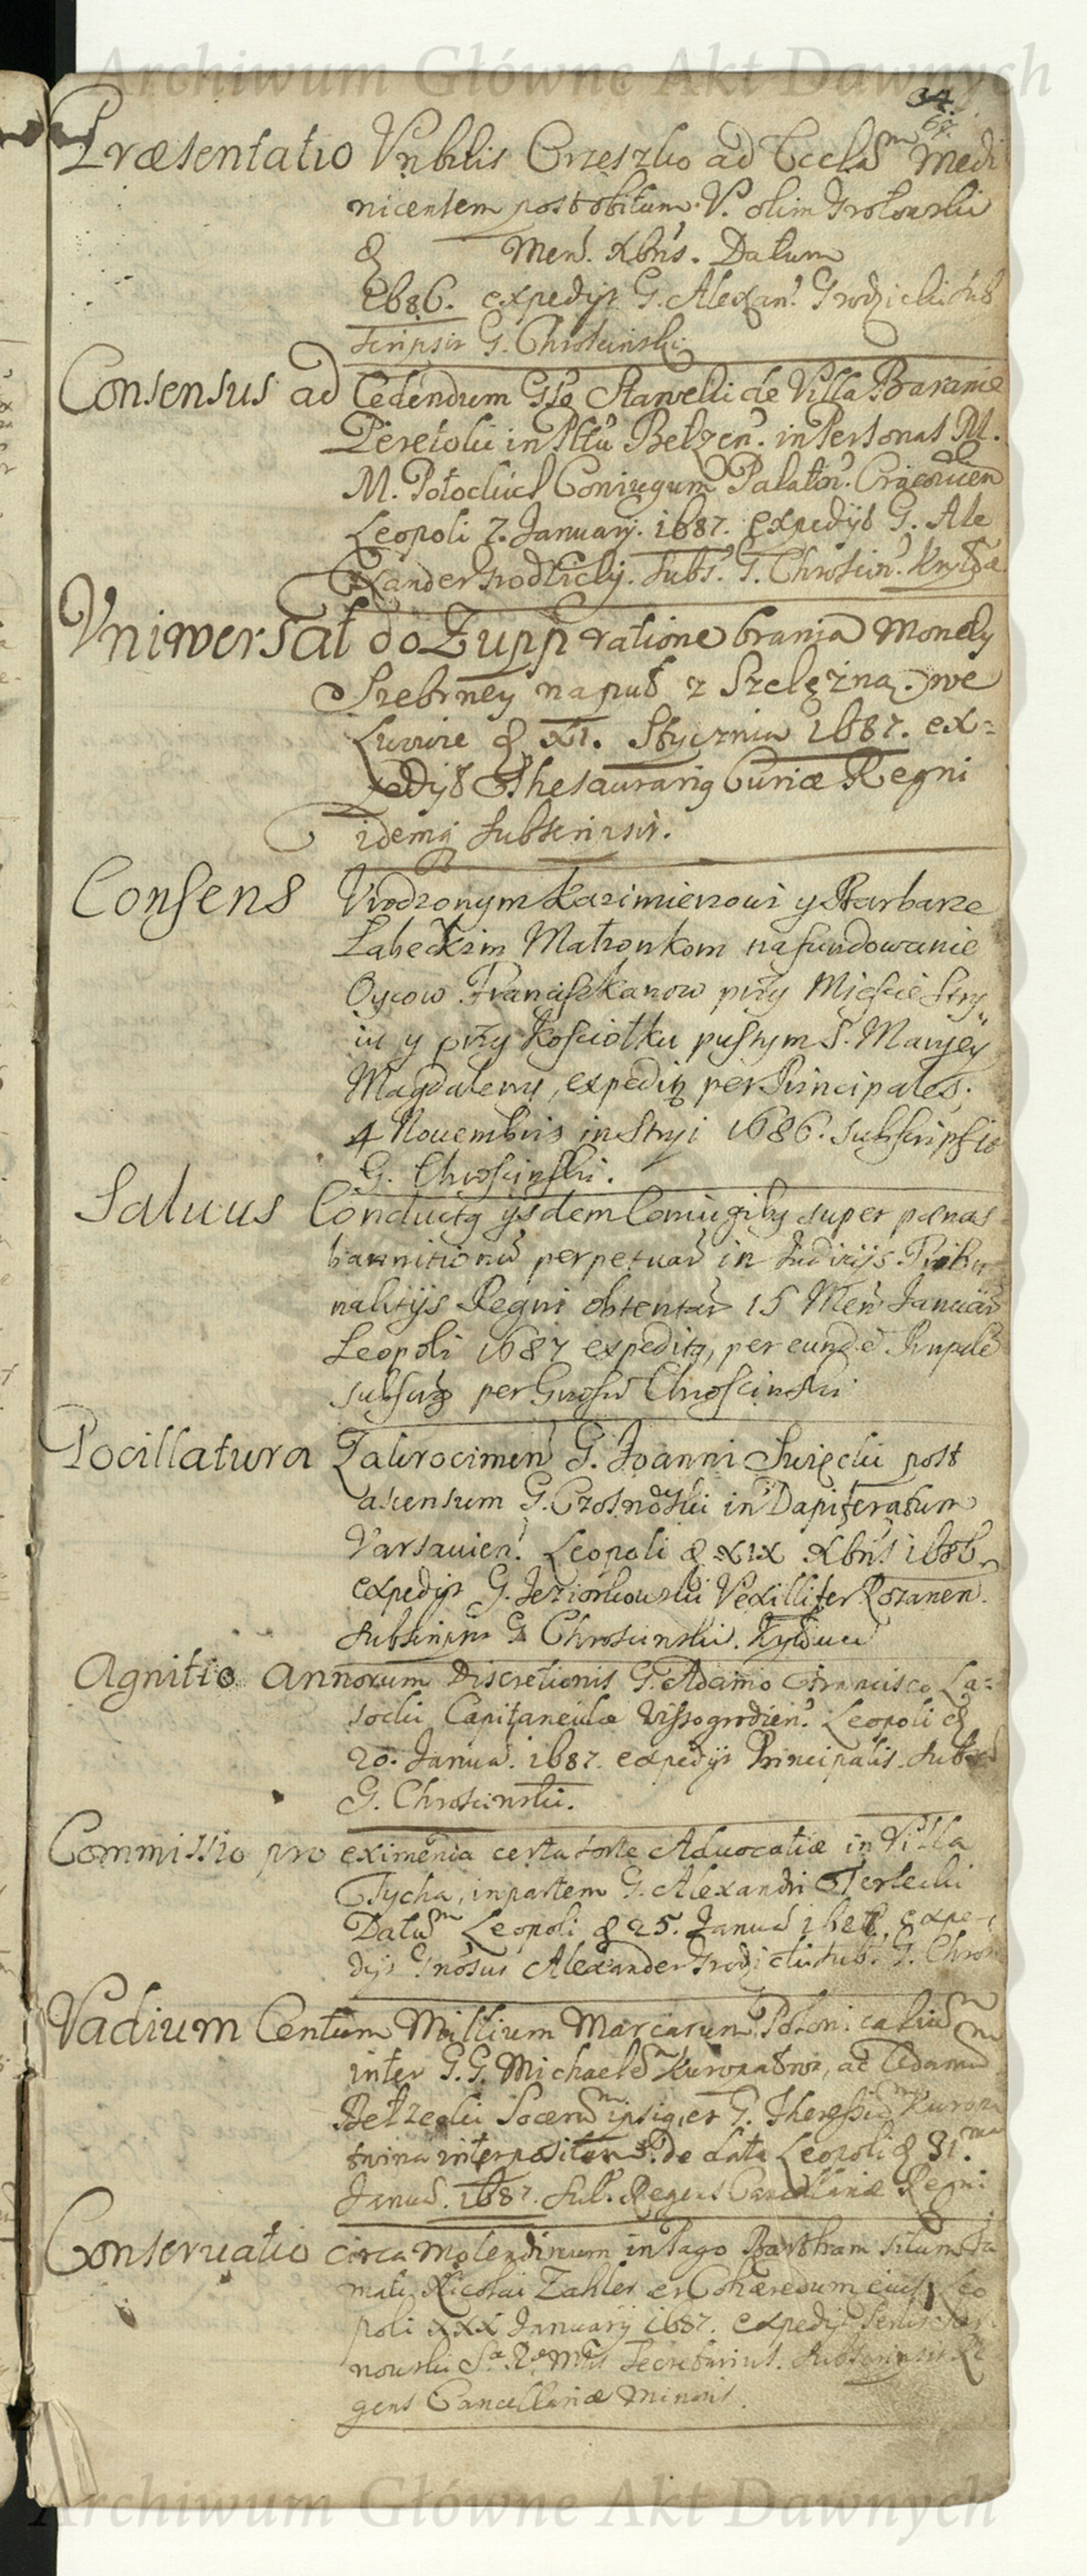 Archiwum Główne Akt Dawnych
34.
Præsentatio Vnbilis Orzeszko ad Eccla͠m Medi
nicensem post obitum V. olim Grotowski
Mens. Xbris. Datum
1686. expedijt G. Alexan. Grodzicki sub
scripsit G. Chrościnski
Consensus ad Cedendum Gso Starvelii de Villa Baranie
Peretoki in Pltu Belzen. in Personas M.
M. Potockich Coniugum Palatin. Cracouien
Leopoli 7. January. 1687. Expedijt G. Ale
xander Grodzicky. Subs. G. Chrościn.
Vniwersał do Zupp ratione brania Monety
Srebrney na puł z Szelężną. we
Lwowie d. XI. Stycznia 1687. ex=
pedijt Thesaurarig Curiæ Regni
idemq subscripsit.
Consens Vrodzonym Kazimierzowi y Barbarze
Łabeckim Małzonkom na fundowanie
Oycow Franciszkanow przy Mieście Stry
iu y przy Kosciołku pustym S. Maryey
Magdaleny, expeditg per Principales.
4 Nouembris in Stryi 1686. subscripsit
G. Chroscinski.
Saluus Conductg ijsdem Coniugibg super pænas
bannitionu perpetuar in Iudicijs Tribu
nalitijs Regni obtentar 15 Men Januar
Leopoli 1687 expeditg, per eunde Prinpale
subscrip per Gnosu Chroscinski
Pocillatura Zakrocimen G. Joanni Święcki post
ascensum G. Czosnowski in Dapiferatum
Varsauien. Leopoli d XIX Xbris 1686
expedijt G. Jeziorkowski Vexillifer Rozanen.
Subscripsit G Chroscinski.
Agnitio Annorum Discretionis G. Adamo Francisco La=
socki Capitaneidæ Wissogrodien. Leopoli d
20. Janua. 1687. expedijt Principalis. Subscr
G. Chroscinski.
Commissio pro eximenda certa sorte Aduocatiæ in Villa
Tycha, in partem G. Alexandri Terlecki
Datum Leopoli d 25. Janua 1687. expe-
dijt Gnosus Alexander Grodzicki sub. G. Chros
Vadium Centum Millium Marcarum Poloni.
inter G. G. Michaelem Kuropatwa, ac
Belzecki Socerum ipsig, et G. Theressia Kuropa
twina interpositum. de data Leopoli d 31.ma
Janua. 1687. Sub. Regens Cancellariæ Regni
Conseruatio circa Molendinum in Pago Bartham situm Fa
mati Nicolai Zahler et Cohæredum eius Leo
poli XXX Januarij 1687. expedijt
nowski Sa Rę Mtis Secretarius. Subscripsit Re
gens Cancellariæ Minoris.
Archiwum Główne Akt Dawnych